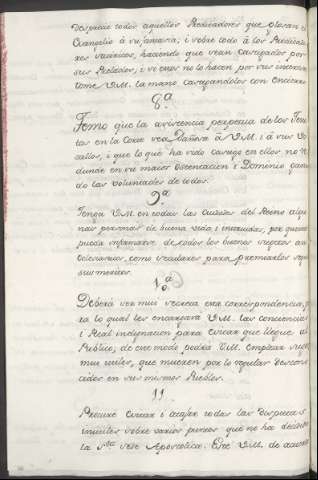 Despreie todos aquellos Predicadores que glosan el
Evangelio à su manera; i sobre todo à los Predicado-
res satiricos, haciendo que sean castigados por
sus Prelados; i si estos no lo hacen por sus intereses
tome V.M. la mano castigandolos con Encierro
8.ª
Temo que la asistencia perpetua de los
en la Corte sea Dañosa à V.M. i à sus Va-
sallos, i que lo que ha sido castigo en ellos, no re-
dunde en su maior Ostentacion i Dominio
do las voluntades de todos.
9.ª
Tenga V.M. en todas las Ciudades del Reino algu-
nas personas de buena vida, i intruidas, por quienes
pueda informarse de todos los buenos sugetos asi
Eclesiasticos, como seculares para premiarlos segun
sus meritos.
10.ª
Deberá ser mui secreta esta correspondencia,
ra lo qual les encargará V.M. las conciencias
i Real indignacion para evitar que llegue al
Publico, de este modo podrá V.M. emplear suge-
mui utiles, que mueren por lo regular descono-
cidos en sus mismos Pueblos.
11.
Procure evitar i atajar todas las Disputas
inutiles sobre varios puntos que no ha decidido
la S.ta Sede Apostolica. Esté V.M. de acuerdo